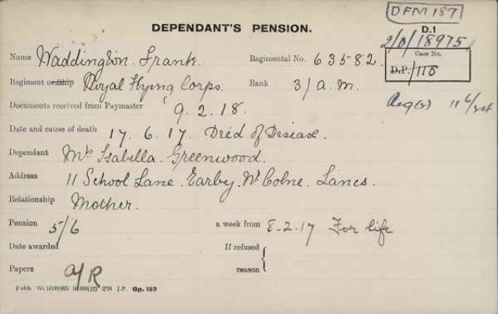 DFM 187
DEPENDANT'S PENSION.
D.1
2/D/18975
Case No.
D.P./116
Name Waddington. Frank. Regimental No. 63582.
Regiment or Ship Royal Flying Corps. Rank 3/a.m.
Documents received from Paymaster 9.2.18.
Date and cause of death 17.6.17. Died of Disease.
Dependant Mrs Isabella Greenwood.
Address 11 School Lane. Earby. Nr Colne. Lancs.
Relationship Mother.
Pension 5/6 a week from 8-2-17 For life
Date awarded If refused
Papers A/R reason
J.P. Gp. 169